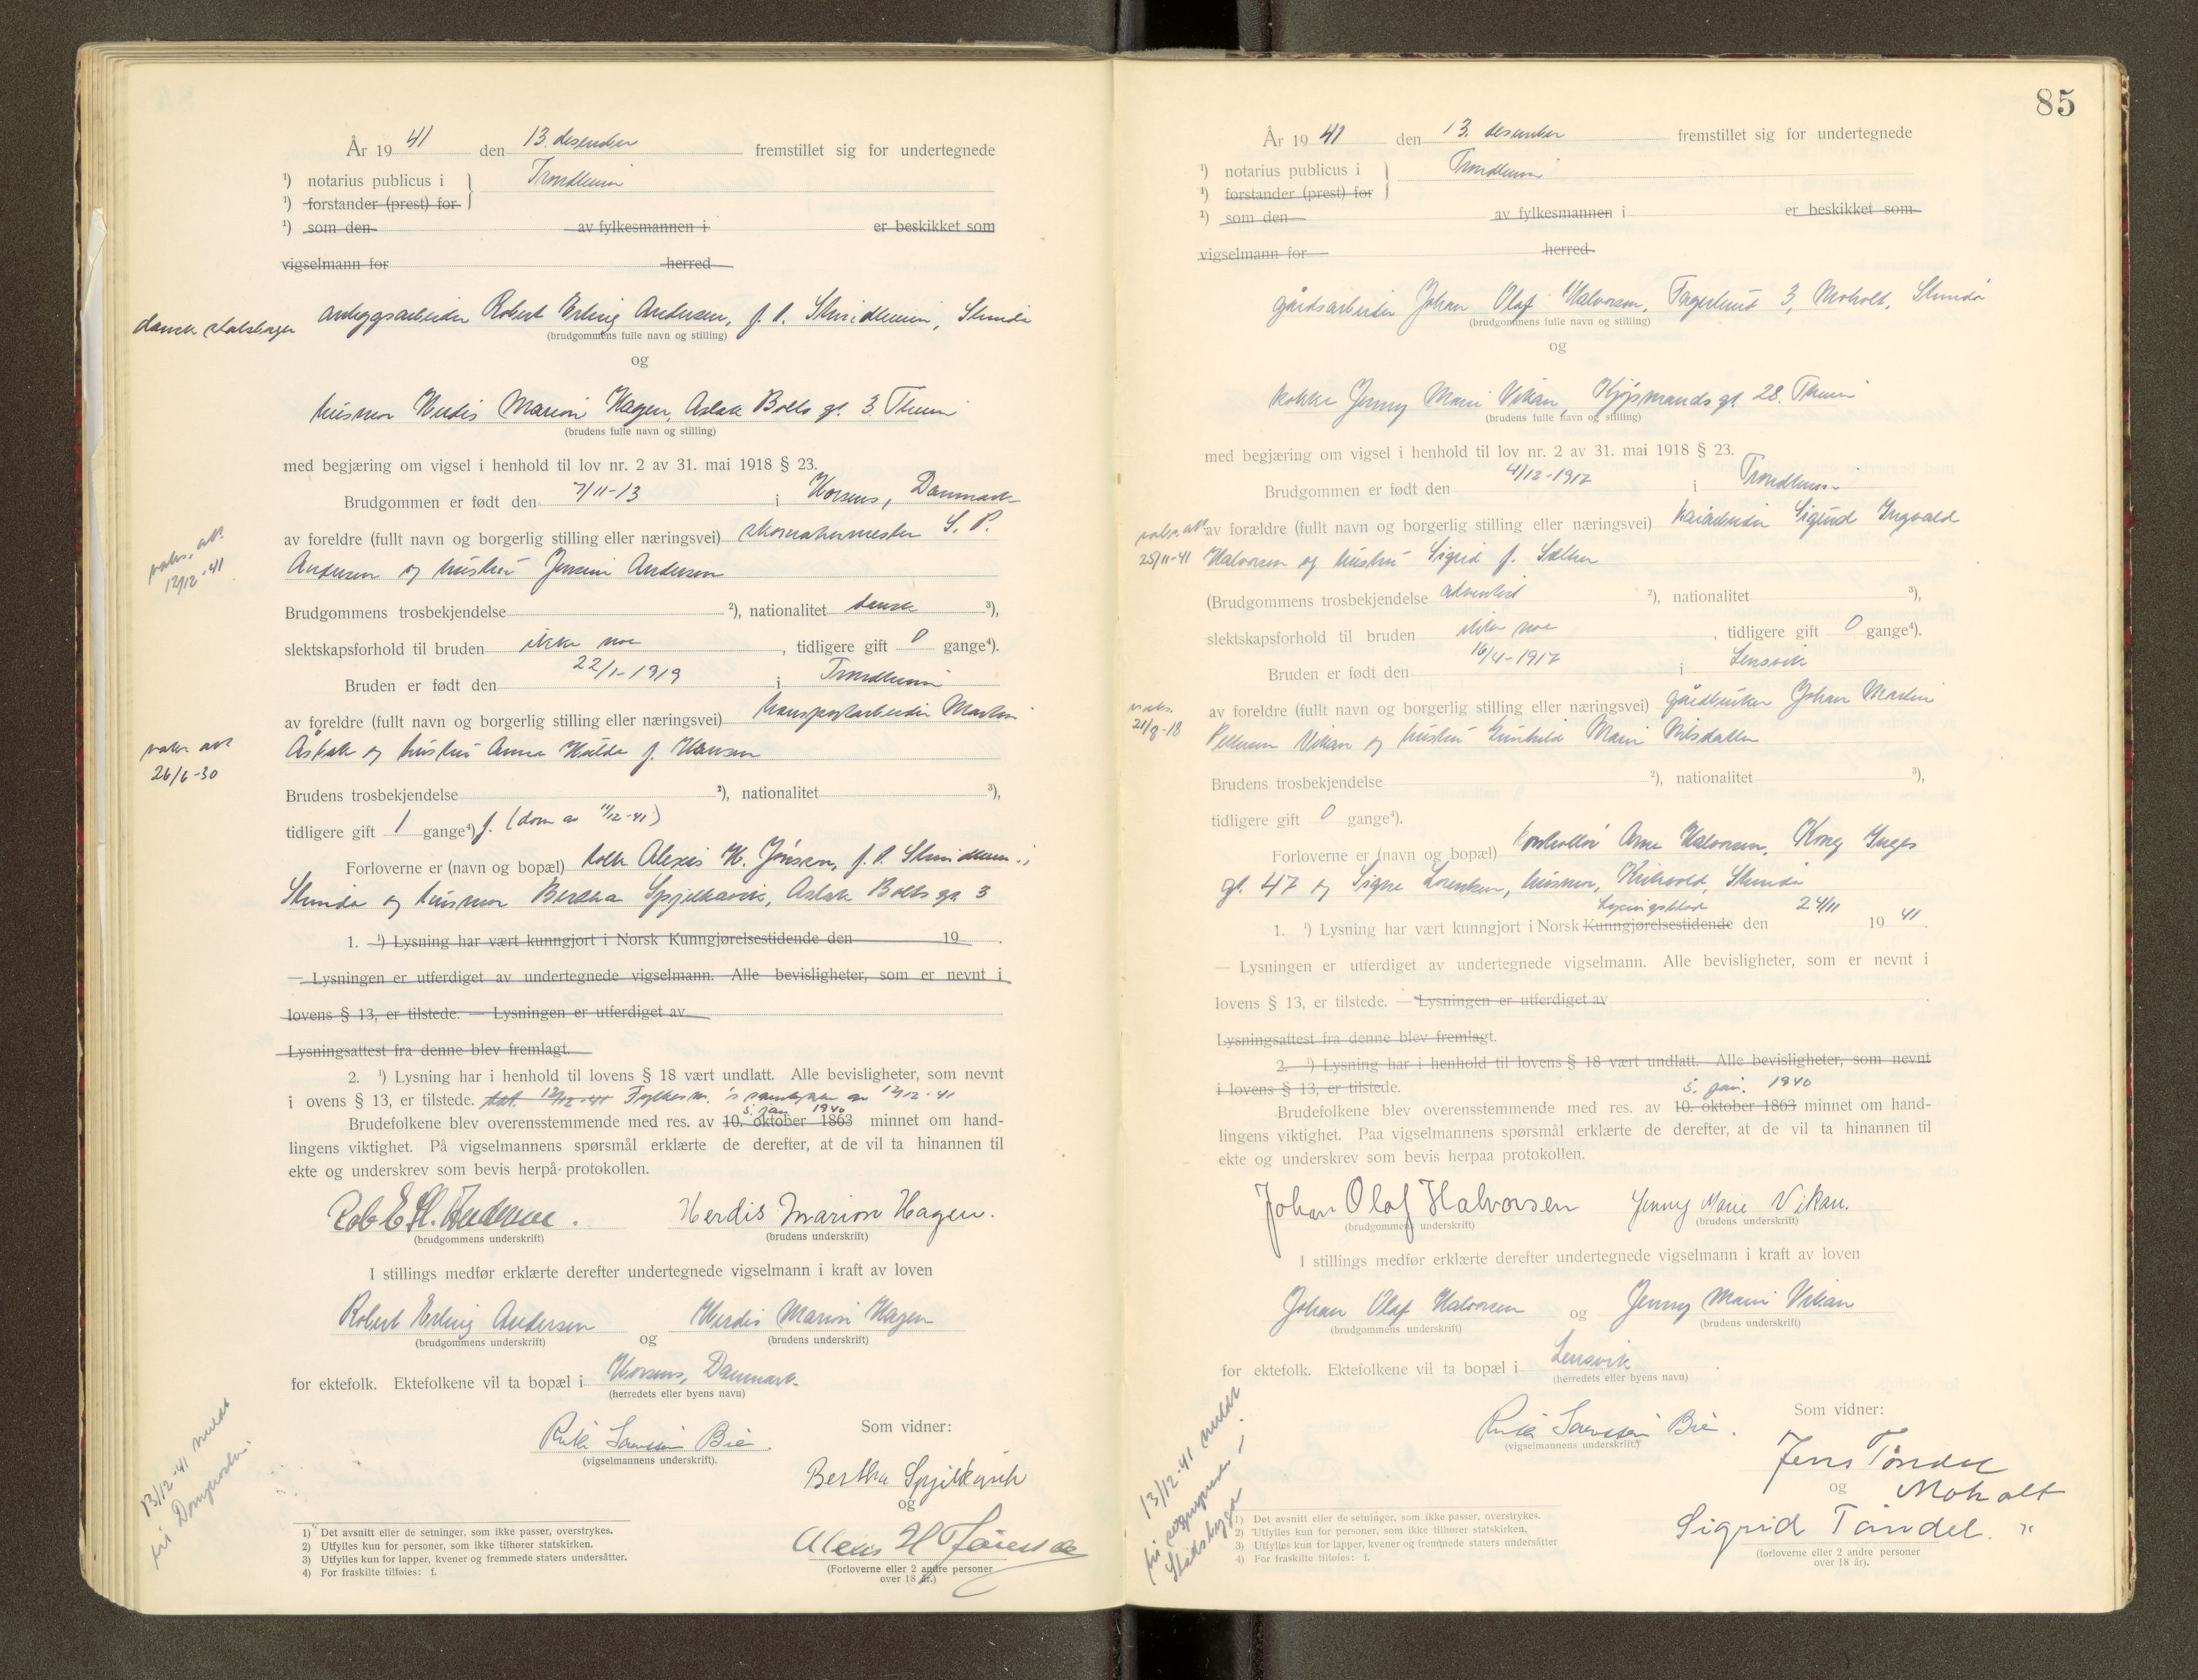 År 19 41 den 13. desember fremstillet sig for undertegnede
¹) notarius publicus i Trondheim
¹) forstander (prest) for
¹) som den av fylkesmannen i er beskikket som
vigselmann for herred
dansk statsborger
anleggsarbeider Robert Erling Andersen, f. t. Strindheim, Strinda
(brudgommens fulle navn og stilling)
og
husmor Herdis Marion Hagen, Aslak Bolts gt. 3. Theim
(brudens fulle navn og stilling)
med begjæring om vigsel i henhold til lov nr. 2 av 31. mai 1918 § 23.
Brudgommen er født den 7/11-13 i Horsens, Danmark
av foreldre (fullt navn og borgerlig stilling eller næringsvei) skomakermester S. P.
Andersen og hustru Jensine Andersen
vaks. att.
12/12-41
Brudgommens trosbekjendelse ²), nationalitet dansk ³),
slektskapsforhold til bruden ikke noe, tidligere gift 0 gange⁴).
Bruden er født den 22/1-1919 i Trondheim
av foreldre (fullt navn og borgerlig stilling eller næringsvei) transportarbeider Martin
Åsbak og hustru Anna Hulda f. Hansen
vaks. att
26/6-30
Brudens trosbekjendelse ²), nationalitet ³),
tidligere gift 1 gange⁴) f. (dom av 11/12-41)
Forloverne er (navn og bopæl) kokk Alexis H. Jönsen, f. t. Strindheim,
Strinda og husmor Bertha Spjelkavik, Aslak Bolts gt 3
1. ¹) Lysning har vært kunngjort i Norsk Kunngjørelsestidende den 19 .
— Lysningen er utferdiget av undertegnede vigselmann. Alle bevisligheter, som er nevnt i
lovens § 13, er tilstede. — Lysningen er utferdiget av
Lysningsattest fra denne blev fremlagt.
2. ¹) Lysning har i henhold til lovens § 18 vært undlatt. Alle bevisligheter, som nevnt
i ovens § 13, er tilstede. 12/12-41 Fylkesm.'s samtykke av 12/12-41
5. jan 1940
Brudefolkene blev overensstemmende med res. av 10. oktober 1863 minnet om hand-
lingens viktighet. På vigselmannens spørsmål erklærte de derefter, at de vil ta hinannen til
ekte og underskrev som bevis herpå protokollen.
Rob E. Andersen. Herdis Marion Hagen.
(brudgommens underskrift) (brudens underskrift)
I stillings medfør erklærte derefter undertegnede vigselmann i kraft av loven
Robert Erling Andersen og Herdis Marion Hagen
(brudgommens underskrift) (brudens underskrift)
for ektefolk. Ektefolkene vil ta bopæl i Horsens, Danmark.
(herredets eller byens navn)
13/12-41 meldt
til Domprosten.
Som vidner:
Ruth Sørensen Bie.
(vigselmannens underskrift).
Bertha Spjelkavik
og
Alexis H
(Forloverne eller 2 andre personer
over 18 år.)
1) Det avsnitt eller de setninger, som ikke passer, overstrykes.
2) Utfylles kun for personer, som ikke tilhører statskirken.
3) Utfylles kun for lapper, kvener og fremmede staters undersåtter.
4) For fraskilte tilføies: f.
85
År 19 41 den 13. desember fremstillet sig for undertegnede
¹) notarius publicus i Trondheim
¹) forstander (prest) for
¹) som den av fylkesmannen i er beskikket som
vigselmann for herred
gårdsarbeider Johan Olaf Halvorsen, Fagerlund 3, Moholt, Strinda
(brudgommens fulle navn og stilling)
og
kokke Jenny Marie Vikan, Kjøpmandsgt. 28. Theim
(brudens fulle navn og stilling)
med begjæring om vigsel i henhold til lov nr. 2 av 31. mai 1918 § 23.
Brudgommen er født den 4/12-1917 i Trondheim
vaks. att
25/11-41
av forældre (fullt navn og borgerlig stilling eller næringsvei) kaiarbeider Sigurd Ingvald
Halvorsen og hustru Sigrid f. Sæther
(Brudgommens trosbekjendelse adventist ²), nationalitet ³),
slektskapsforhold til bruden ikke noe, tidligere gift 0 gange⁴).
Bruden er født den 16/4-1917 i Lensvik
vaks.
21/9-18
av foreldre (fullt navn og borgerlig stilling eller næringsvei) gårdbruker Johan Martin
Pettersen Vikan og hustru Gunhild Marie Nilsdatter
Brudens trosbekjendelse ²), nationalitet ³),
tidligere gift 0 gange⁴).
Forloverne er (navn og bopæl) kontrollør Arne Halvorsen, Kong Inges
gt. 47 og Signe Lorentsen, husmor, Strinda
Lysingsblad 24/11
1. ¹) Lysning har vært kunngjort i Norsk Kunngjørelsestidende den 19 41.
— Lysningen er utferdiget av undertegnede vigselmann. Alle bevisligheter, som er nevnt i
lovens § 13, er tilstede. — Lysningen er utferdiget av
Lysningsattest fra denne blev fremlagt.
2. ¹) Lysning har i henhold til lovens § 18 vært undlatt. Alle bevisligheter, som nevnt
i lovens § 13, er tilstede.
5. jan. 1940
Brudefolkene blev overensstemmende med res. av 10. oktober 1863 minnet om hand-
lingens viktighet. Paa vigselmannens spørsmål erklærte de derefter, at de vil ta hinannen til
ekte og underskrev som bevis herpaa protokollen.
Johan Olaf Halvorsen Jenny Marie Vikan.
(brudgommens underskrift) (brudens underskrift)
I stillings medfør erklærte derefter undertegnede vigselmann i kraft av loven
Johan Olaf Halvorsen og Jenny Marie Vikan
(brudgommens underskrift) (brudens underskrift)
for ektefolk. Ektefolkene vil ta bopæl i Lensvik.
(herredets eller byens navn)
13/12-41 meldt
til sogneprest i
Stadsbygd
Som vidner:
Ruth Sørensen Bie.
(vigselmannens underskrift.)
Jens Tøndel
og Moholt
Sigrid Tøndel. "
(forloverne eller 2 andre personer
over 18 år).
1) Det avsnitt eller de setninger, som ikke passer, overstrykes.
2) Utfylles kun for personer, som ikke tilhører statskirken.
3) Utfylles kun for lapper, kvener og fremmede staters undersåtter
4) For fraskilte tilføies: f.